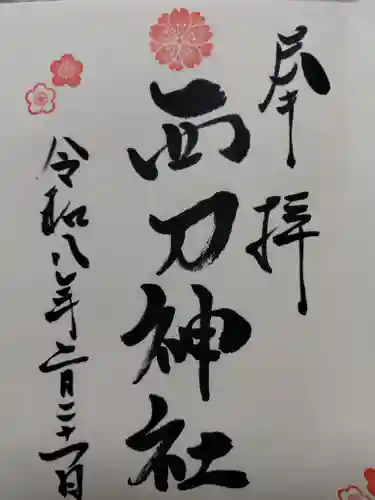 奉拝
両刀神社
令和八年二月二十一日